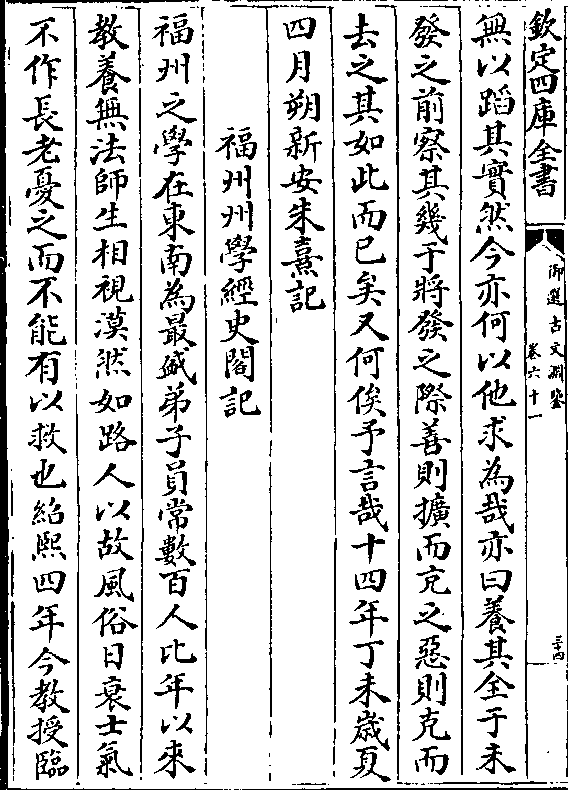 欽定四庫全書
御選古文淵鑒
卷六十一
三十四
無以蹈其實然今亦何以他求為哉亦曰養其全于未
發之前察其幾于將發之際善則擴而充之惡則克而
去之其如此而已矣又何俟予言哉十四年丁未歲夏
四月朔新安朱熹記
福州州學經史閣記
福州之學在東南為最盛弟子員常數百人比年以來
教養無法師生相視漠然如路人以故風俗日衰士氣
不作長老憂之而不能有以救也紹熙四年今教授臨